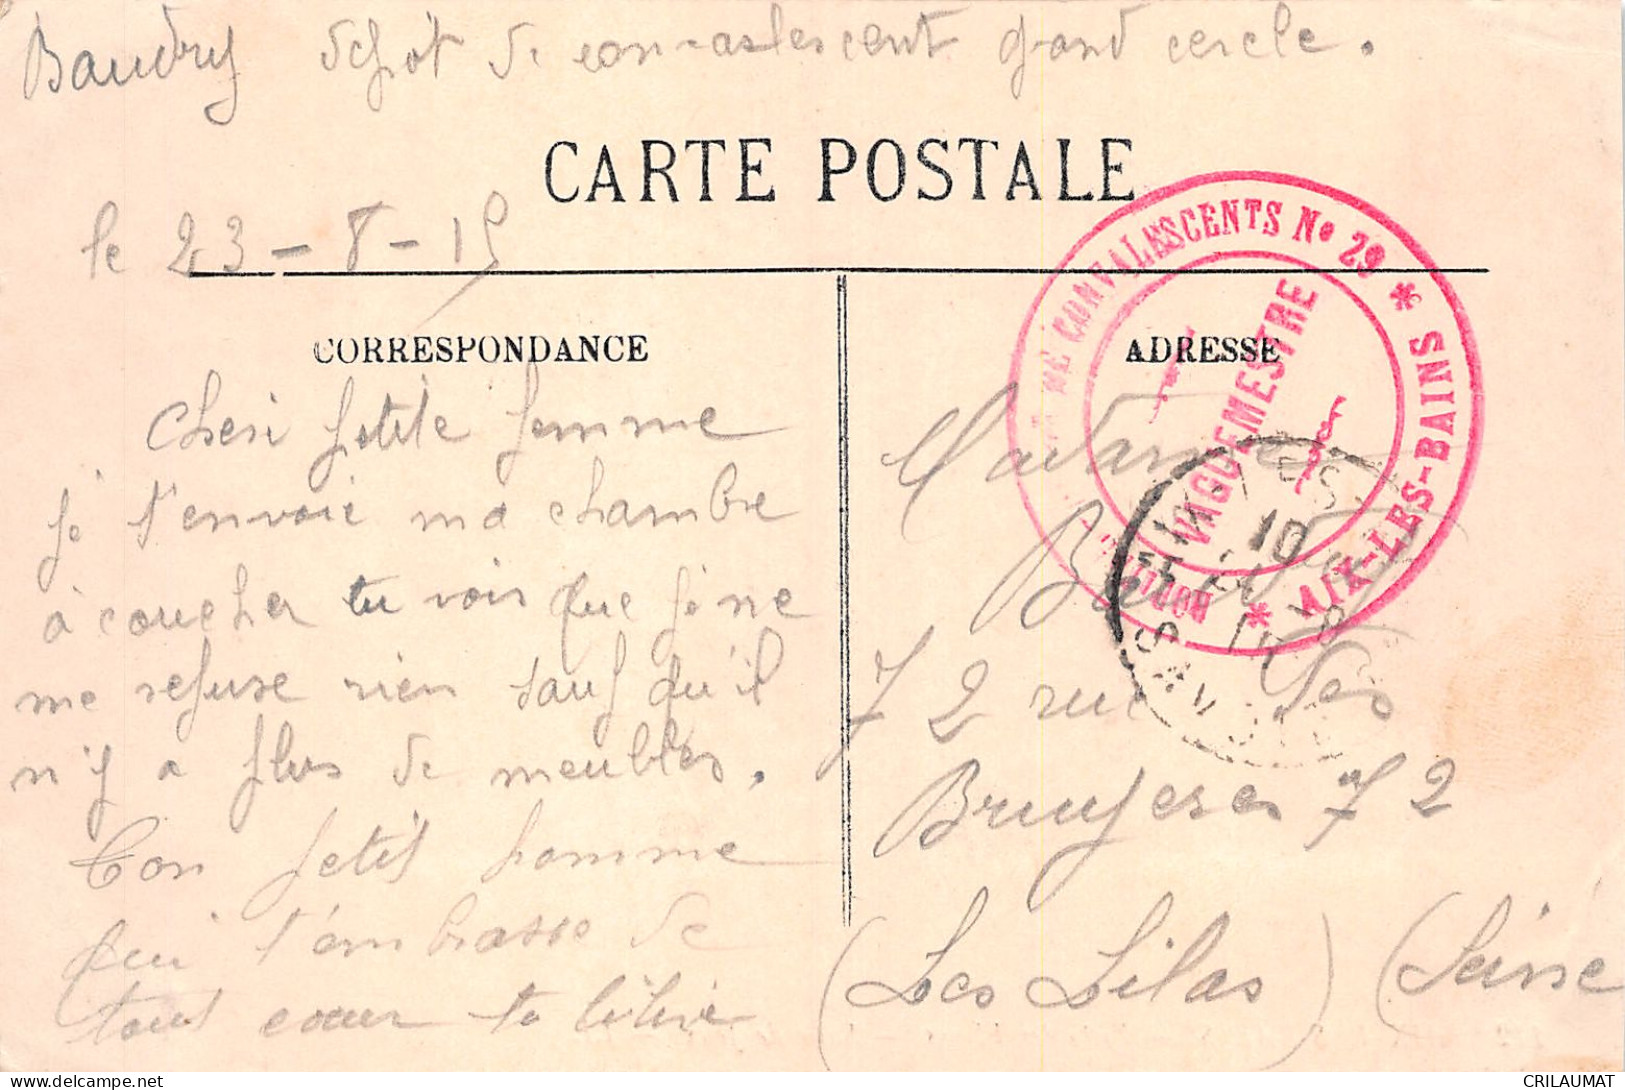 Baudry depot de convaslescent grand cercle.
CARTE POSTALE
le 23-8-15
CORRESPONDANCE
ADRESSE
Cheri petite femme
je t'envoie ma chambre
à coucher tu vois que je ne
me refuse rien sauf qu'il
n'y a plus de meubles.
Ton petit homme
qui t'embrasse de
tout cœur ta
Madame
Baudry
72 rue des
Bruyeres 72
(Les Lilas) (Seine
DE CONVALESCENTS No 29 * AIX-LES-BAINS *
VAGUEMESTRE
AIX-LES-BAINS
10
SAVOIE
CRILAUMAT